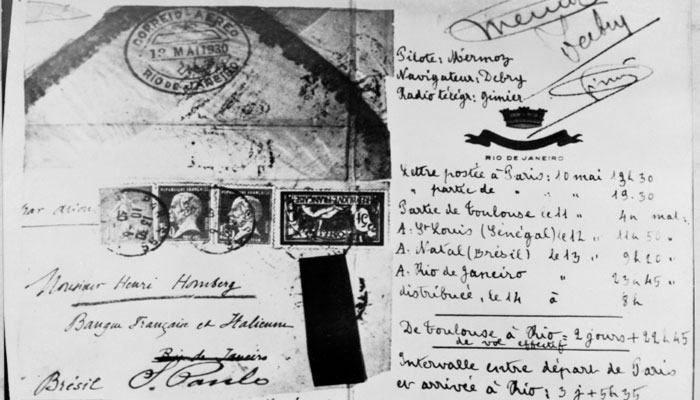 CORREIO AEREO
12 MAI 1930
RIO DE JANEIRO
REPUBLIQUE FRANÇAISE
REPUBLIQUE FRANÇAISE
par avion
Monsieur Henri Homberg
Banque Française et Italienne
Rio de Janeiro
Brésil S. Paulo
Mermoz
Debry
Gimié
Pilote: Mermoz
Navigateur: Debry
Radio télégr: Gimier.
RIO DE JANEIRO
Lettre postée à Paris: 10 mai 19h30
" partie de " " " 19.30
Partie de Toulouse le 11 " 4h mat:
A. St Louis (Sénégal) le 12 " 11h50 "
A. Natal (Brésil) le 13 " 9h20 "
A. Rio de Janeiro " 23h45 "
distribuée, le 14 à 8h
De Toulouse à Rio = 2 jours + 22h45
de vol effectif
Intervalle entre départ de Paris
et arrivée à Rio: 3 j + 5h35